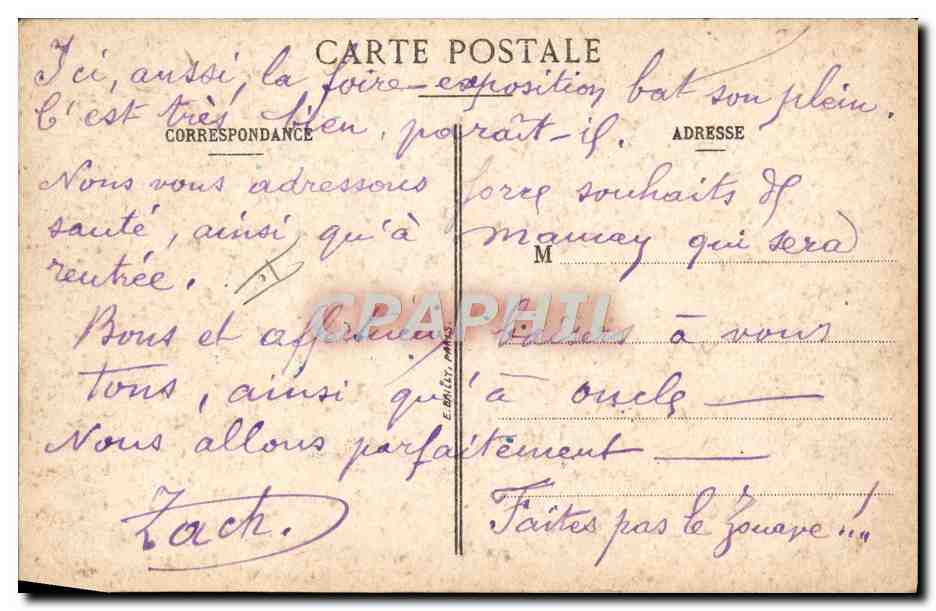 CARTE POSTALE
Ici, aussi, la foire-exposition bat son plein.
C'est très bien, paraît-il.
CORRESPONDANCE
ADRESSE
Nous vous adressons force souhaits de
santé, ainsi qu'à qui sera
M
rentrée.
CPAPHIL
Bons et affectueux baisers à vous
tous, ainsi qu'à oncle
E. BAILLY, PARIS
Nous allons parfaitement
Zach.
Faites pas le Zouave!!..